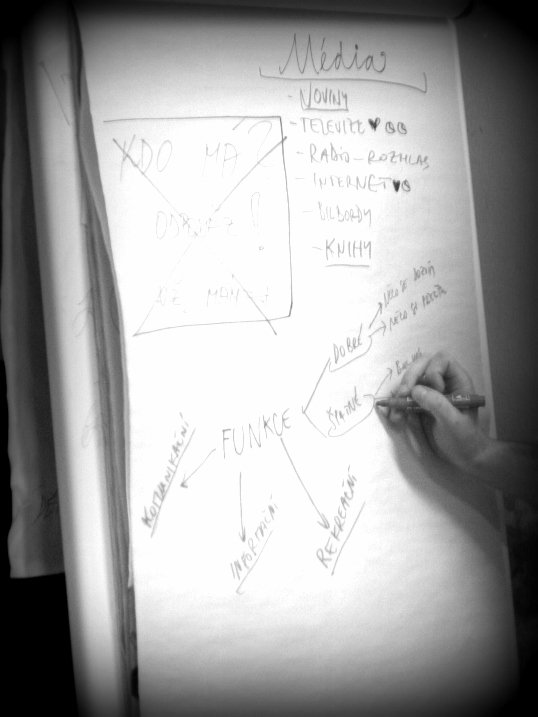 Média
- NOVINY
- TELEVIZE
- RADIO - ROZHLAS
- INTERNET
- BILBORDY
- KNIHY
KDO MÁ ?
FUNKCE
DOBRÉ
ŠPATNÉ
KOMUNIKAČNÍ
INFORMAČNÍ
REKREAČNÍ